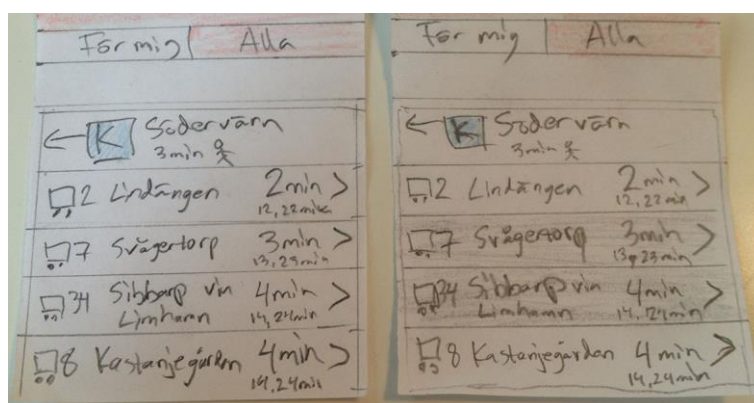 För mig Alla
K Södervärn
3 min
2 Lindängen 2min >
12, 22 min
7 Svågertorp 3min >
13, 23 min
34 Sibbarp vin 4min >
Limhamn 14, 24min
8 Kastanjegården 4min >
14, 24min
För mig Alla
K Södervärn
3 min
2 Lindängen 2 min >
12, 22 min
7 Svågertorp 3min >
13, 23 min
34 Sibbarp vin 4min >
Limhamn 14, 24min
8 Kastanjegården 4 min >
14, 24min